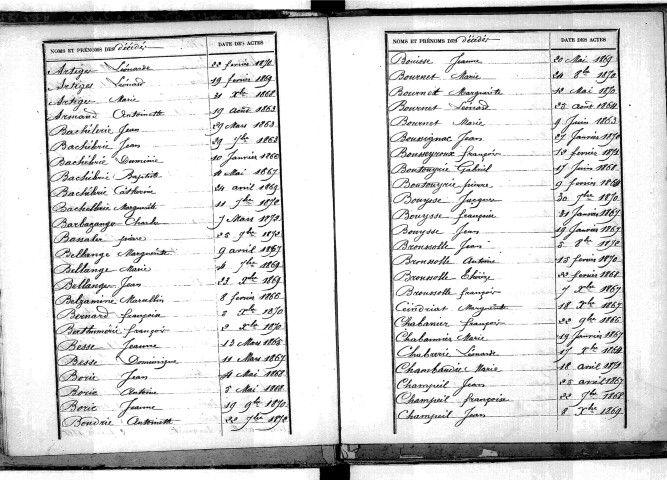 NOMS ET PRÉNOMS DES décédés DATE DES ACTES
Artiges Léonarde 20 février 1870
Artiges Léonard 19 février 1869
Artige Marie 21 Xbre 1868
Armand Antoinette 19 Août 1863
Bachélerie Jean 29 Mars 1863
Bachélerie Jean 29 7bre 1863
Bachélerie Dominique 10 Janvier 1866
Bachélerie Baptiste 4 Mai 1867
Bachélerie Catherine 24 avril 1869
Bachellerie Marguerite 11 7bre 1870
Barbazange Charles 7 Mars 1872
Banater pierre 25 9bre 1872
Bellange Marguerite 9 avril 1867
Bellange Marie 4 7bre 1869
Bellanger Jean 23 Xbre 1869
Belzamine Marcellin 8 février 1866
Bernard françoise 2 Xbre 1870
Berthumeirie françois 2 Xbre 1870
Besse Jeanne 13 Mars 1865
Besse Dominique 11 Mars 1867
Borie Jean 4 Mai 1868
Borie Antoine 5 Mai 1868
Borie Jeanne 19 9bre 1870
Boudrie Antoinette 22 7bre 1872
NOMS ET PRÉNOMS DES décédés DATE DES ACTES
Bouisse Jeanne 20 Mai 1869
Bournet Marie 24 8bre 1870
Bournet Marguerite 10 Mai 1870
Bournet Léonard 23 Août 1864
Bournet Marie 9 Juin 1863
Boussignac Jean 27 Janvier 1870
Bousseyroux françois 12 février 1872
Boutouyrie Gabriel 17 Juin 1868
Boutouyrie pierre 9 février 1864
Bouysse Jacques 30 7bre 1870
Bouysse françoise 31 Janvier 1867
Bouysse Jean 19 Janvier 1867
Broussolle Jean 5 9bre 1870
Broussolle Antoine 15 février 1870
Broussolle Thérèze 22 février 1868
Broussolle françois 7 Xbre 1867
Ceindriat Marguerite 18 Xbre 1867
Chabanier françois 22 9bre 1866
Chabannier Marie 19 Janvier 1867
Chabrerie Léonarde 17 Xbre 1864
Chambaudie Marie 18 avril 1872
Champeil Jean 25 avril 1867
Champeil françoise 22 7bre 1868
Champeil Jean 8 Xbre 1869